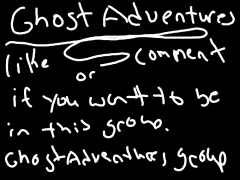 Ghost Adventures
like or comment
if you want to be
in this group.
Ghost Adventures group